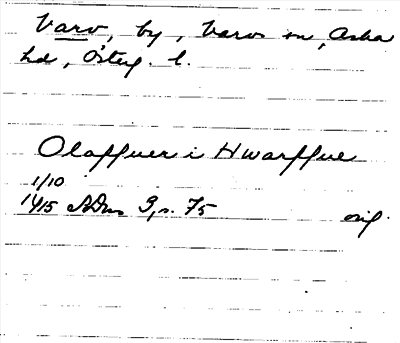 Varv, by, Varvs sn, Aska
hd, Östg. l.
Olaffuer i Hwarffue
1/10
1415 SDns 3, s. 75 orig.